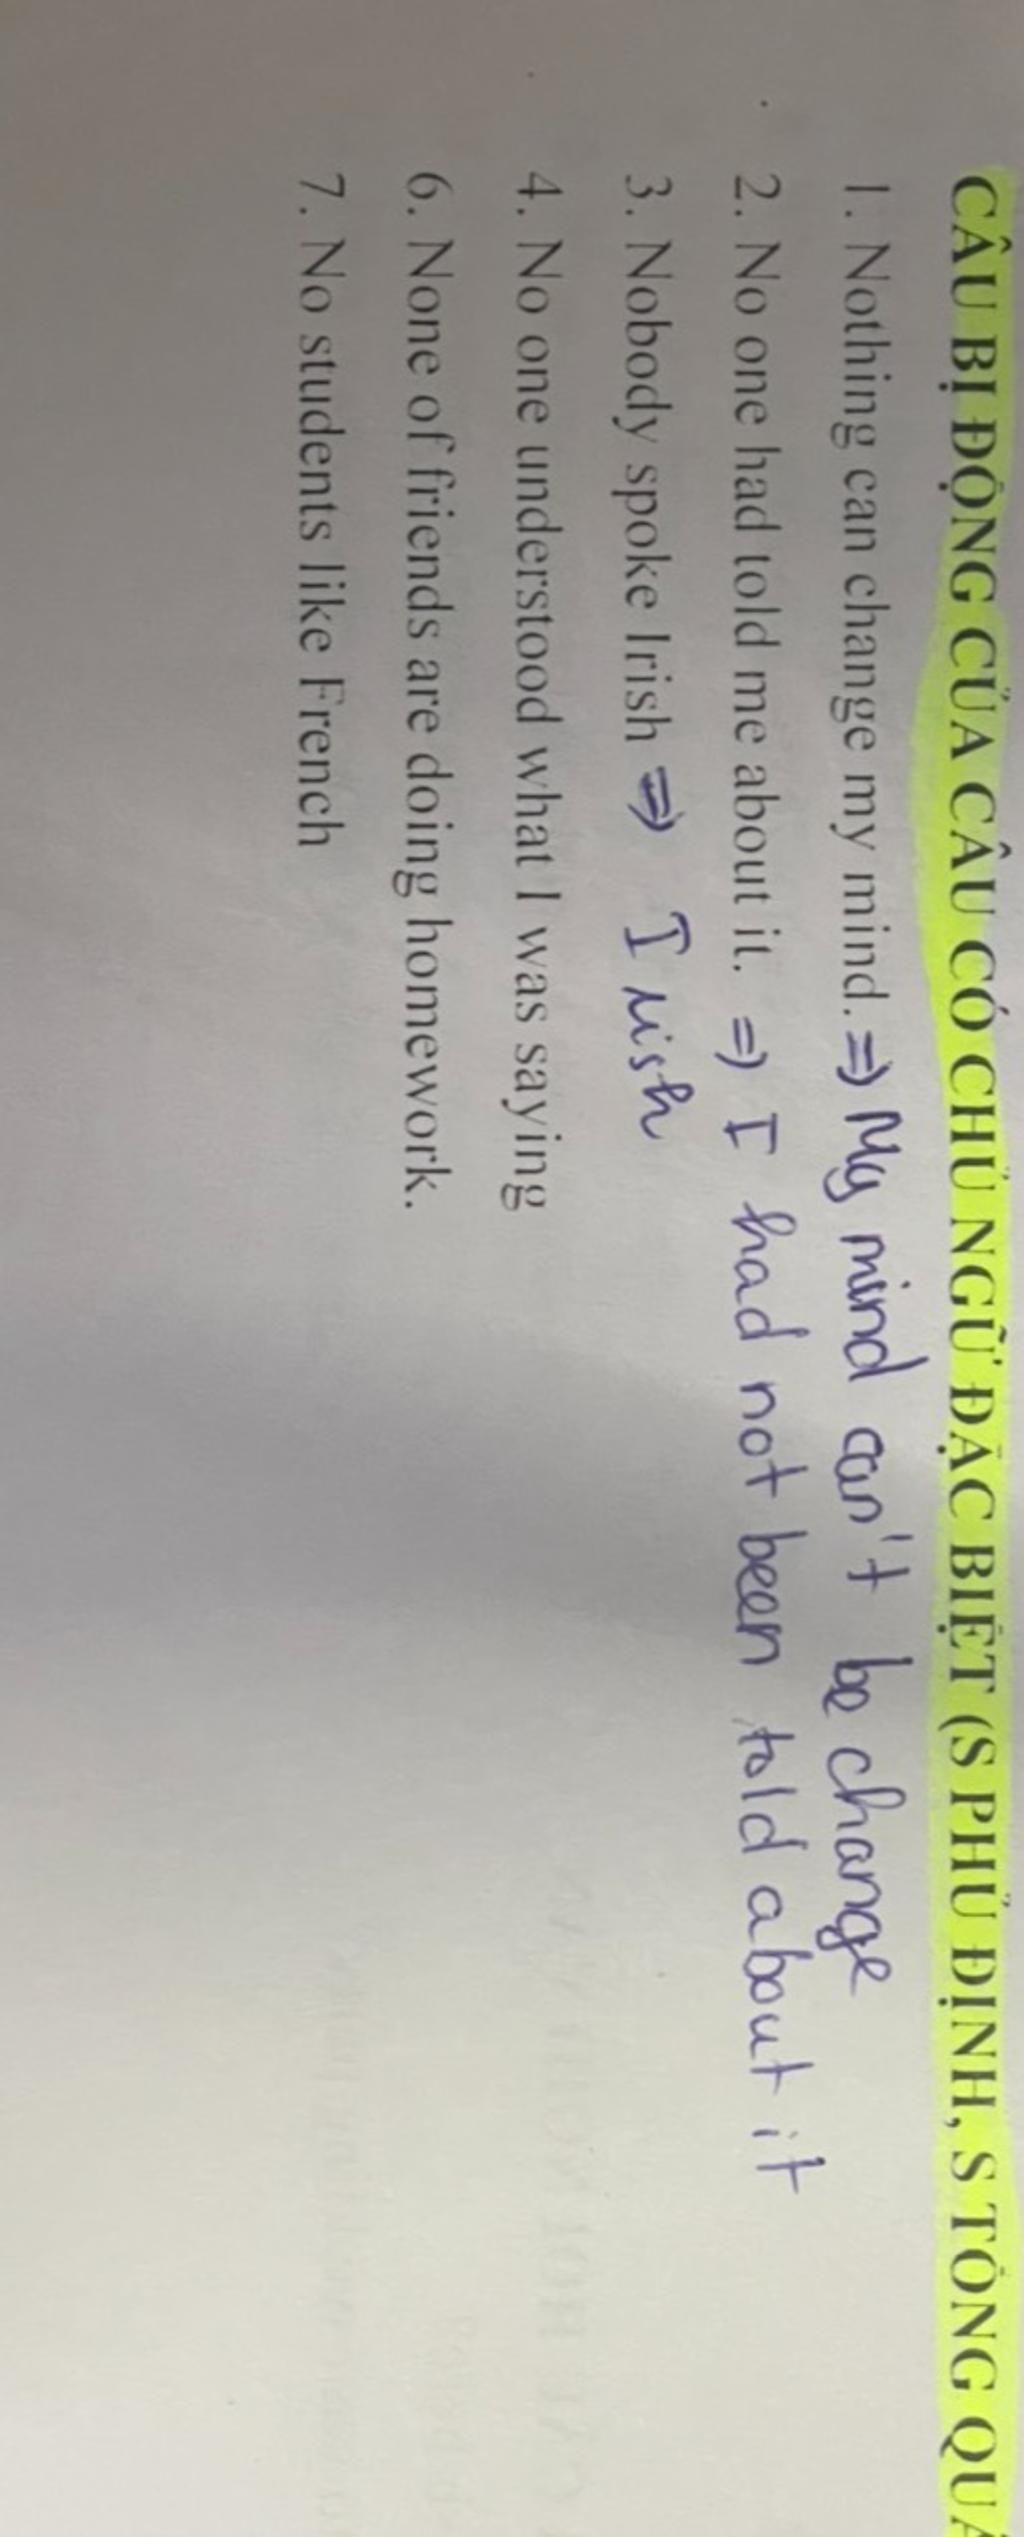 CÂU BỊ ĐỘNG CỦA CÂU CÓ CHỦ NGỮ ĐẶC BIỆT (S PHỦ ĐỊNH, S TỔNG QUÁ
1. Nothing can change my mind. => My mind can't be change
2. No one had told me about it. => I had not been told about it
3. Nobody spoke Irish => Irish
4. No one understood what I was saying
6. None of friends are doing homework.
7. No students like French